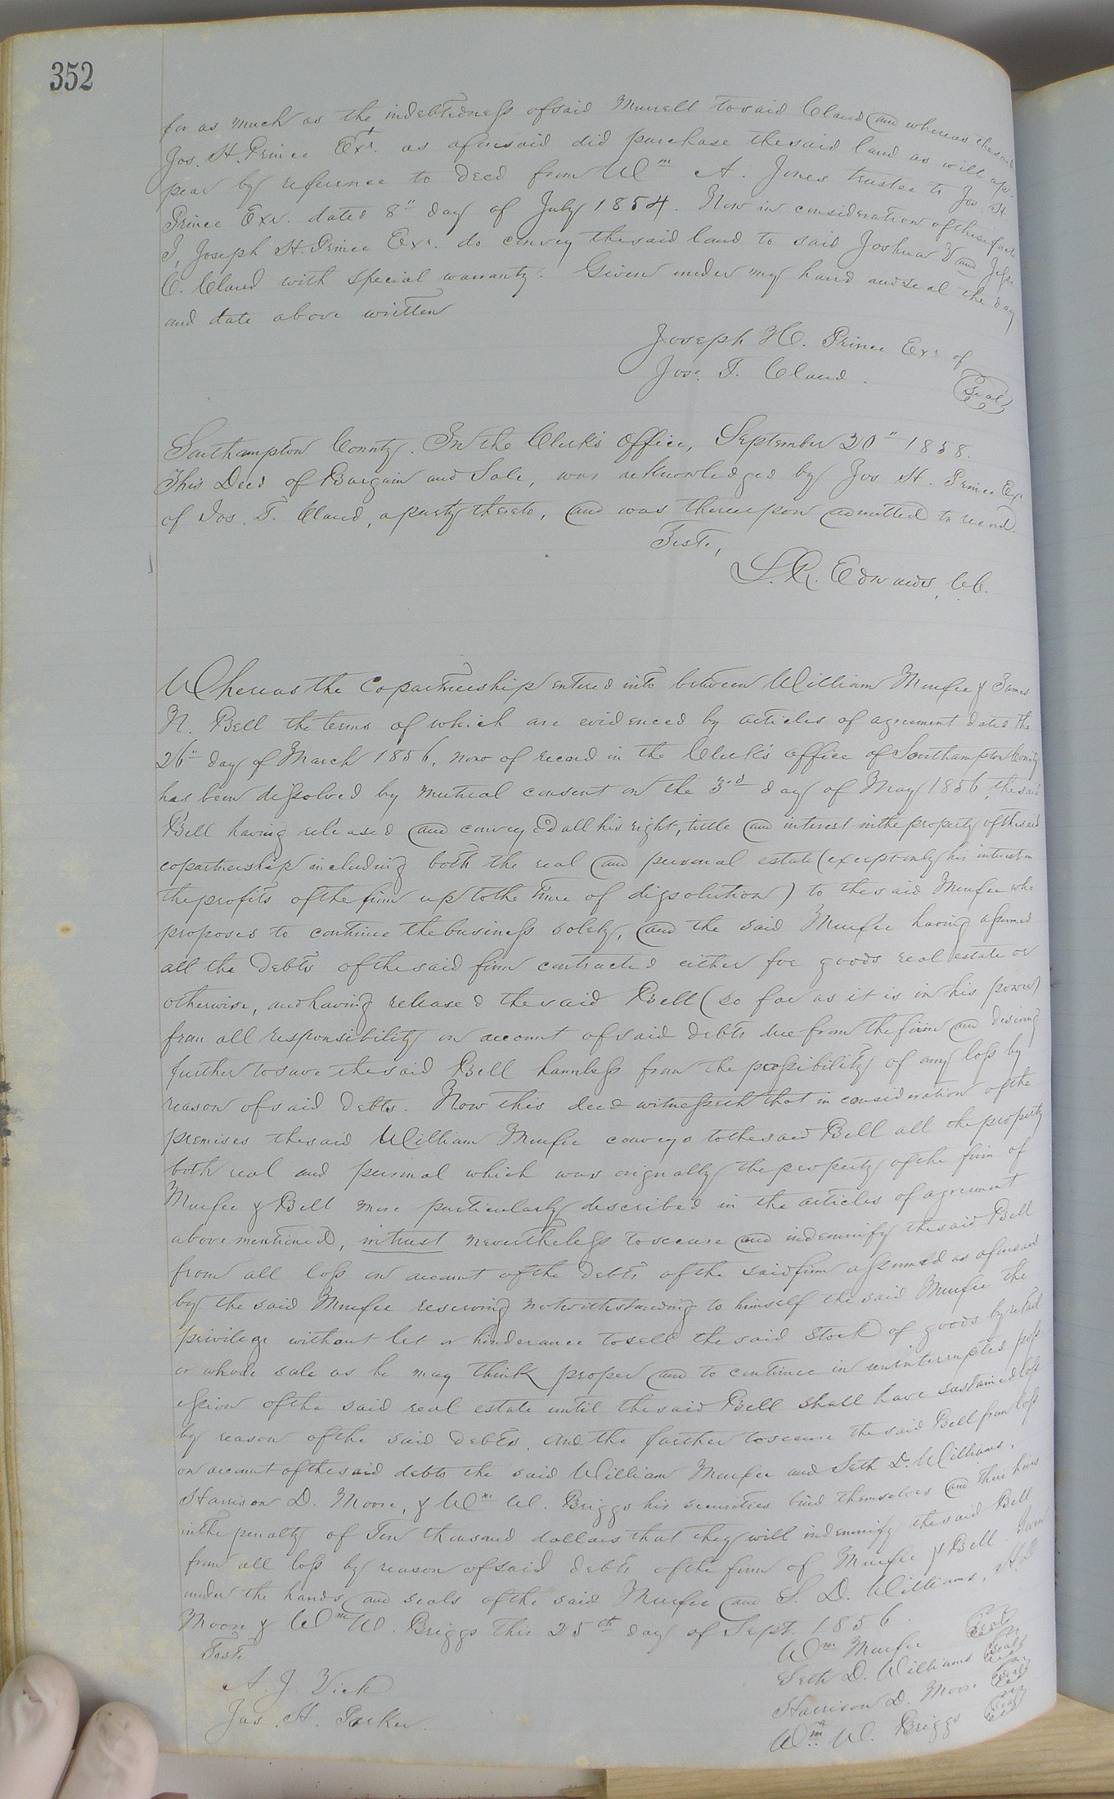 352
for as much as the indebtedness of said Murrell to said Claud and whereas the said
Jos. H. Prince Exr. as aforesaid did purchase the said land as will ap-
pear by reference to deed from Wm A. Jones trustee to Jos. H.
Prince Exr. dated 8" day of July 1854. Now in consideration of these facts
I, Joseph H. Prince Exr. do convey the said land to said Joshua and
C. Claud with special warranty. Given under my hand and seal the day
and date above written
Joseph H. Prince Exr of
Jos. T. Claud. Seal
Southampton County. In the Clerk's Office, September 20" 1858.
This Deed of Bargain and Sale, was acknowledged by Jos. H. Prince Exr
of Jos. T. Claud, a party thereto, and was thereupon admitted to record.
Teste,
L. R. Edwards, C.C.
Whereas the Copartnership entered into between William Murfee & James
N. Bell the terms of which are evidenced by articles of agreement dated the
26" day of March 1856, now of record in the Clerk's office of Southampton County
has been dissolved by mutual consent on the 3rd day of May 1856, the said
Bell having released and conveyed all his right, title and interest in the property of the said
copartnership including both the real and personal estate (except only his interest in
the profits of the firm up to the time of dissolution) to the said Murfee who
proposes to continue the business solely, and the said Murfee having assumed
all the debts of the said firm contracted either for goods real estate or
otherwise, and having released the said Bell (so far as it is in his power)
from all responsibility on account of said debts due from the firm and desiring
further to save the said Bell harmless from the possibility of any loss by
reason of said debts. Now this deed witnesseth that in consideration of the
premises the said William Murfee conveys to the said Bell all the property
both real and personal which was orignally the property of the firm of
Murfee & Bell more particularly described in the articles of agreement
above mentioned, in trust nevertheless to secure and indemnify the said Bell
from all loss on account of the debts of the said firm assumed as aforesaid
by the said Murfee reserving notwithstanding to himself the said Murfee the
privilege without let or hinderance to sell the said Stock of goods by retail
or whole sale as he may think proper and to continue in uninterrupted poss
ession of the said real estate until the said Bell shall have sustained loss
by reason of the said debts. And the further to secure the said Bell from loss
on account of the said debts the said William Murfee and Seth D. Williams,
Harrison D. Moore, & Wm W. Briggs his securities bind themselves and their heirs
in the penalty of Ten thousand dollars that they will indemnify the said Bell
from all loss by reason of said debts of the firm of Murfee & Bell.
under the hands and seals of the said Murfee and S. D. Williams, H. D.
Moore & Wm W. Briggs this 25th day of Sept. 1856
Test. Wm Murfee Seal
A. J. Vick Seth D. Williams Seal
Jas. H. Parker. Harrison D. Moore Seal
Wm W. Briggs Seal